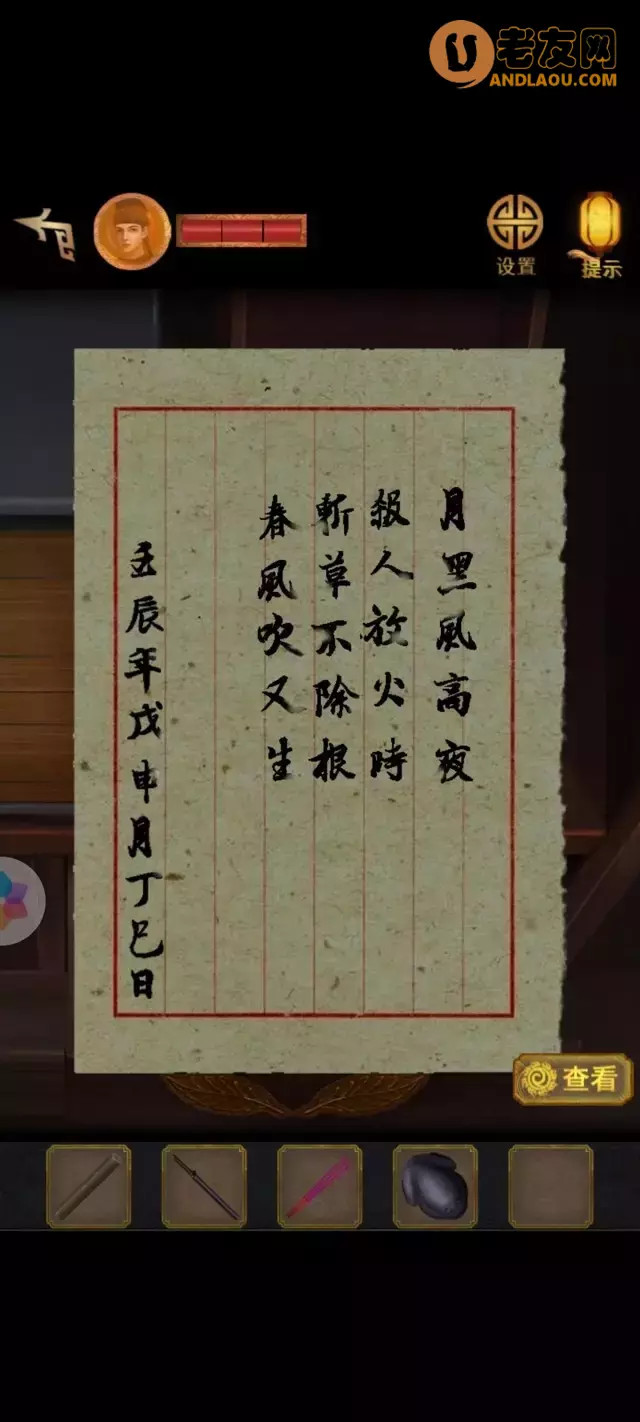 老友网
ANDLAOU.COM
设置
提示
月黑風高夜
殺人放火時
斬草不除根
春風吹又生
壬辰年戊申月丁巳日
查看